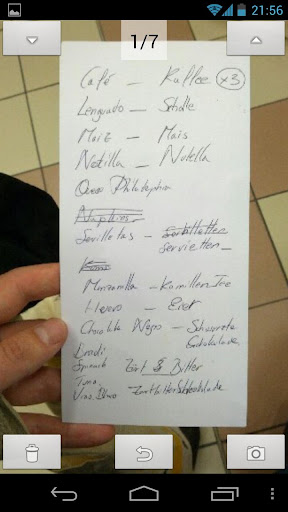 21:56
1/7
Café — Kaffee x3
Lenguado — Scholle
Maiz — Mais
Notilla — Nutella
Queso Philadelphia
Servilletas —
Servietten
Manzanilla — Kamillen Tee
Huevo — Eier
Chocolate Negro — Schwarze
Schokolade
Spinach Zart & Bitter
Tuna
Zartbitterschokolade